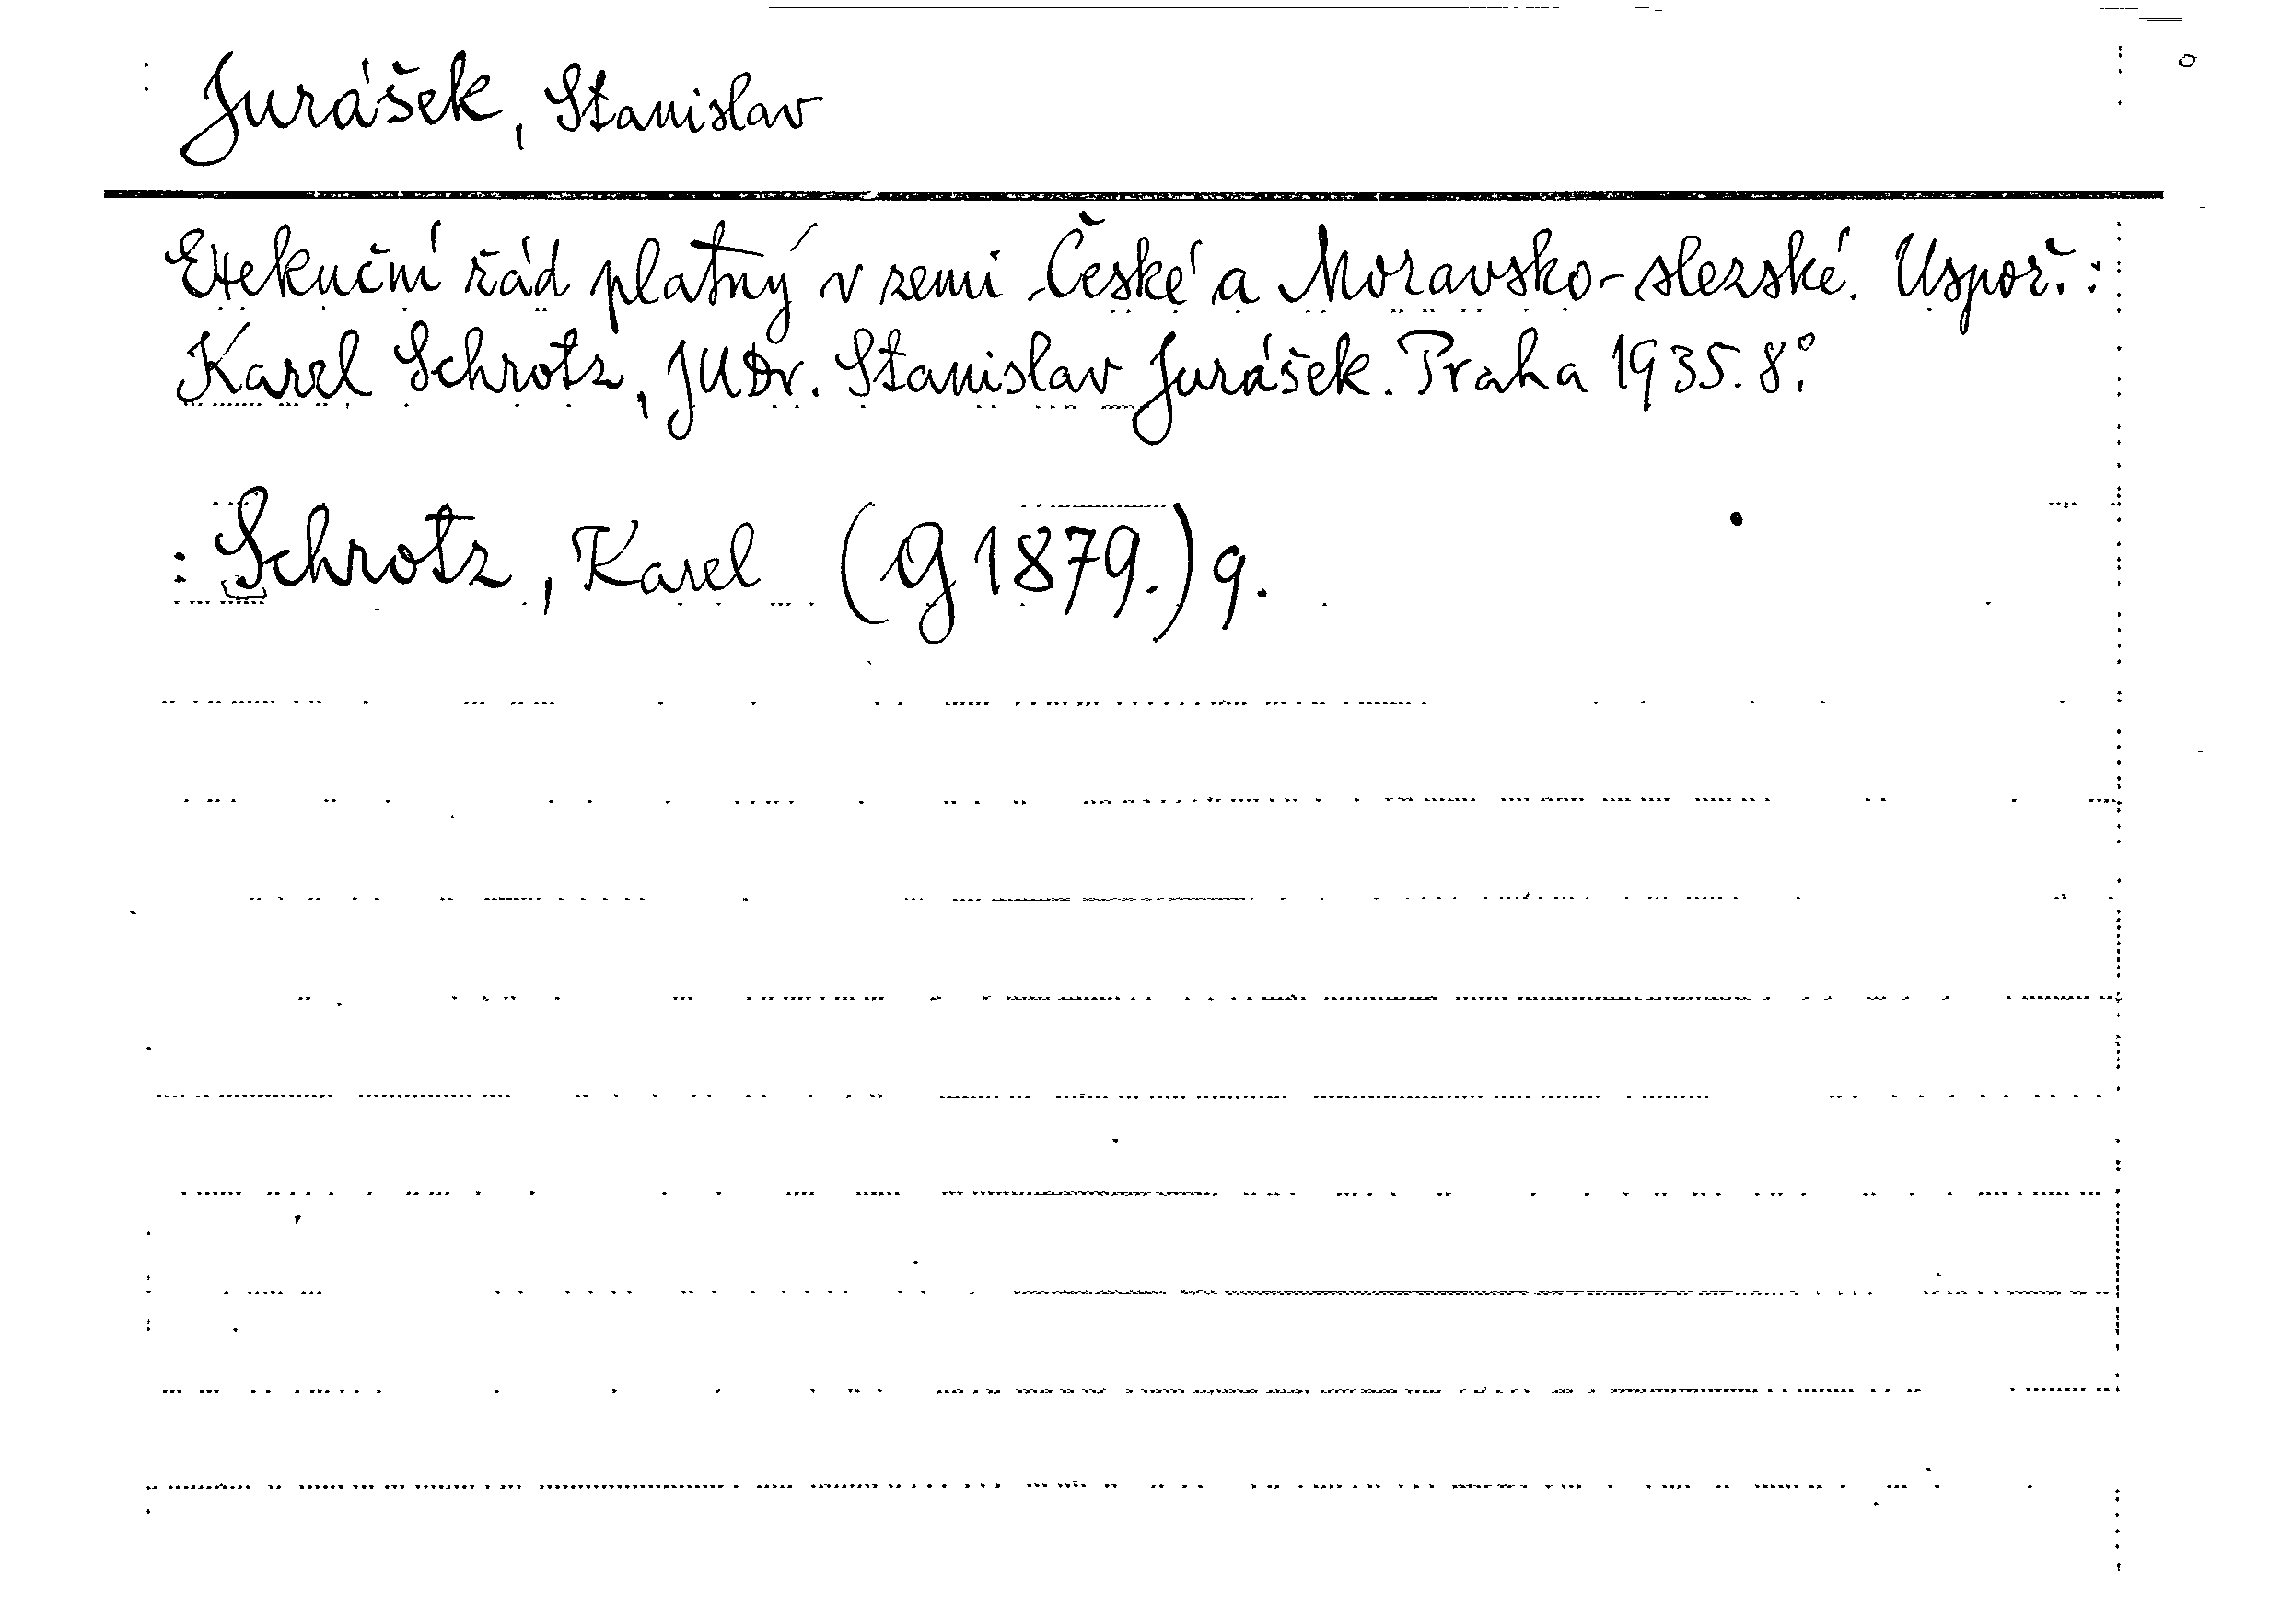 Jurášek, Stanislav
Exekuční řád platný v zemi České a Moravsko-slezské. Uspoř.:
Karel Schrotz, JUDr. Stanislav Jurášek. Praha 1935. 8°.
: Schrotz, Karel (G 1879.) q.